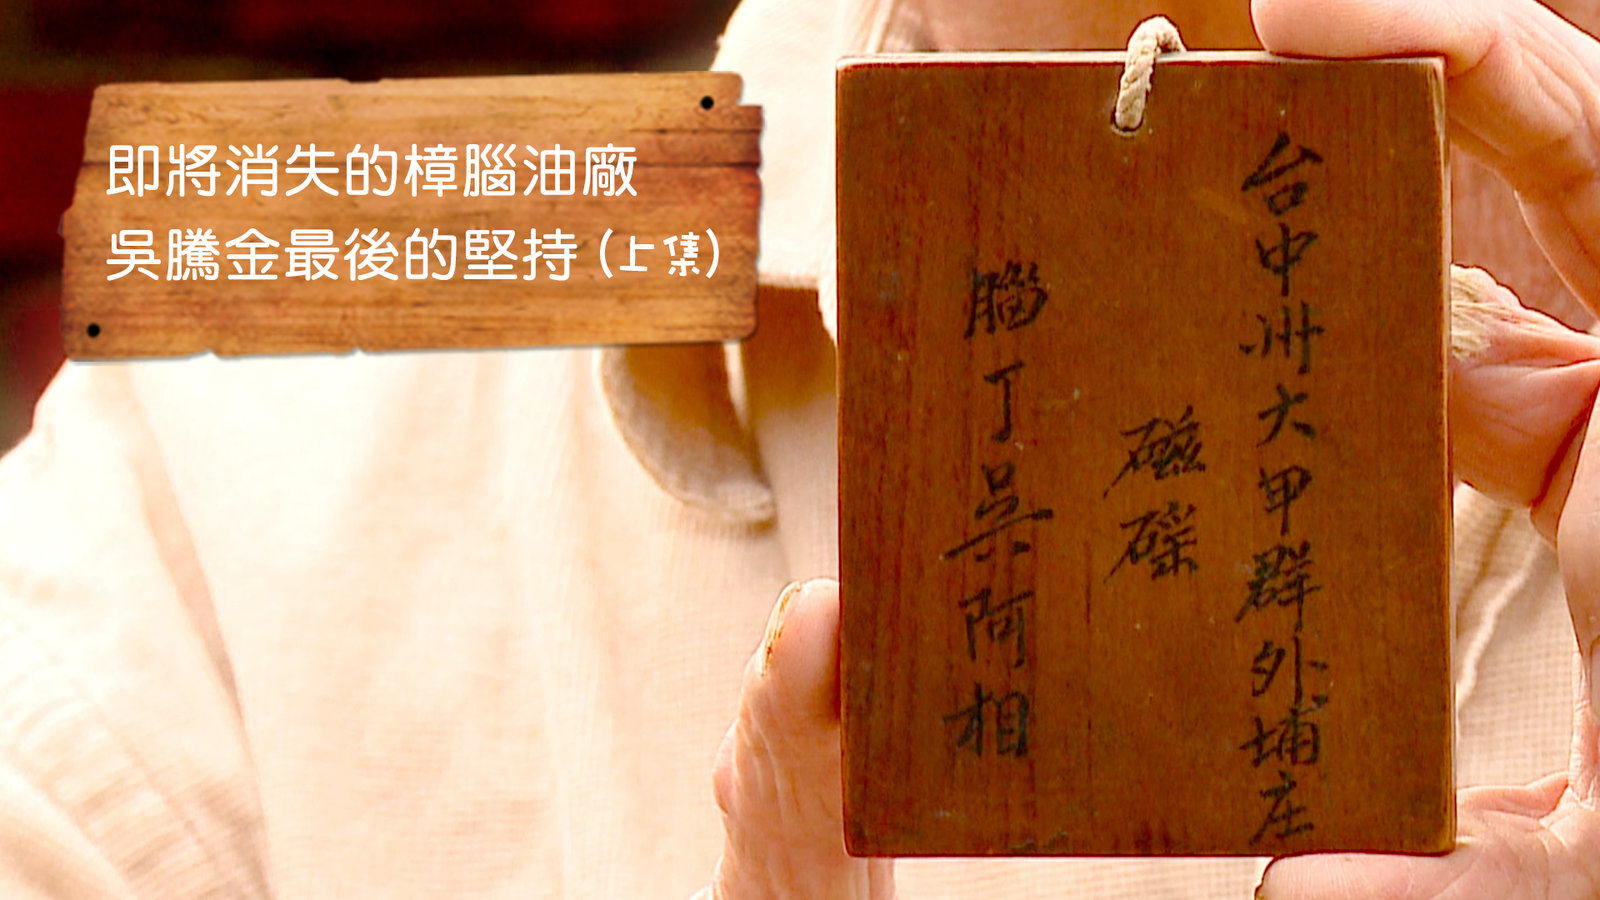 即將消失的樟腦油廠
吳騰金最後的堅持（上集）
台中州大甲群外埔庄
磁磘
腦丁吳阿相